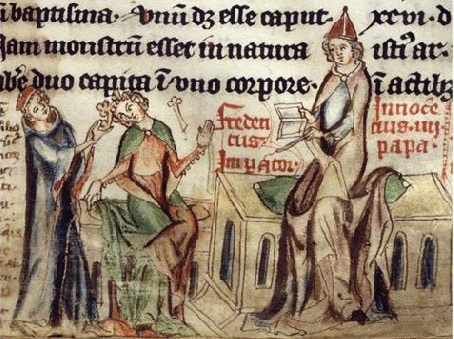 baptisma. vnū dꝫ esse caput. xxvi. d
Jam monstrū esset in natura istiꝰ ar.
duo capita ī vno corpore. ī actibꝫ
Frederi
cus.
Imꝑator.
Innocē
cius. iiij
papa.